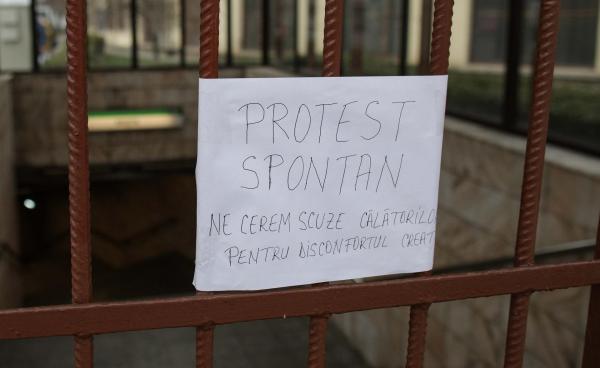 PROTEST
SPONTAN
NE CEREM SCUZE CĂLĂTORILO
PENTRU DISCONFORTUL CREAT